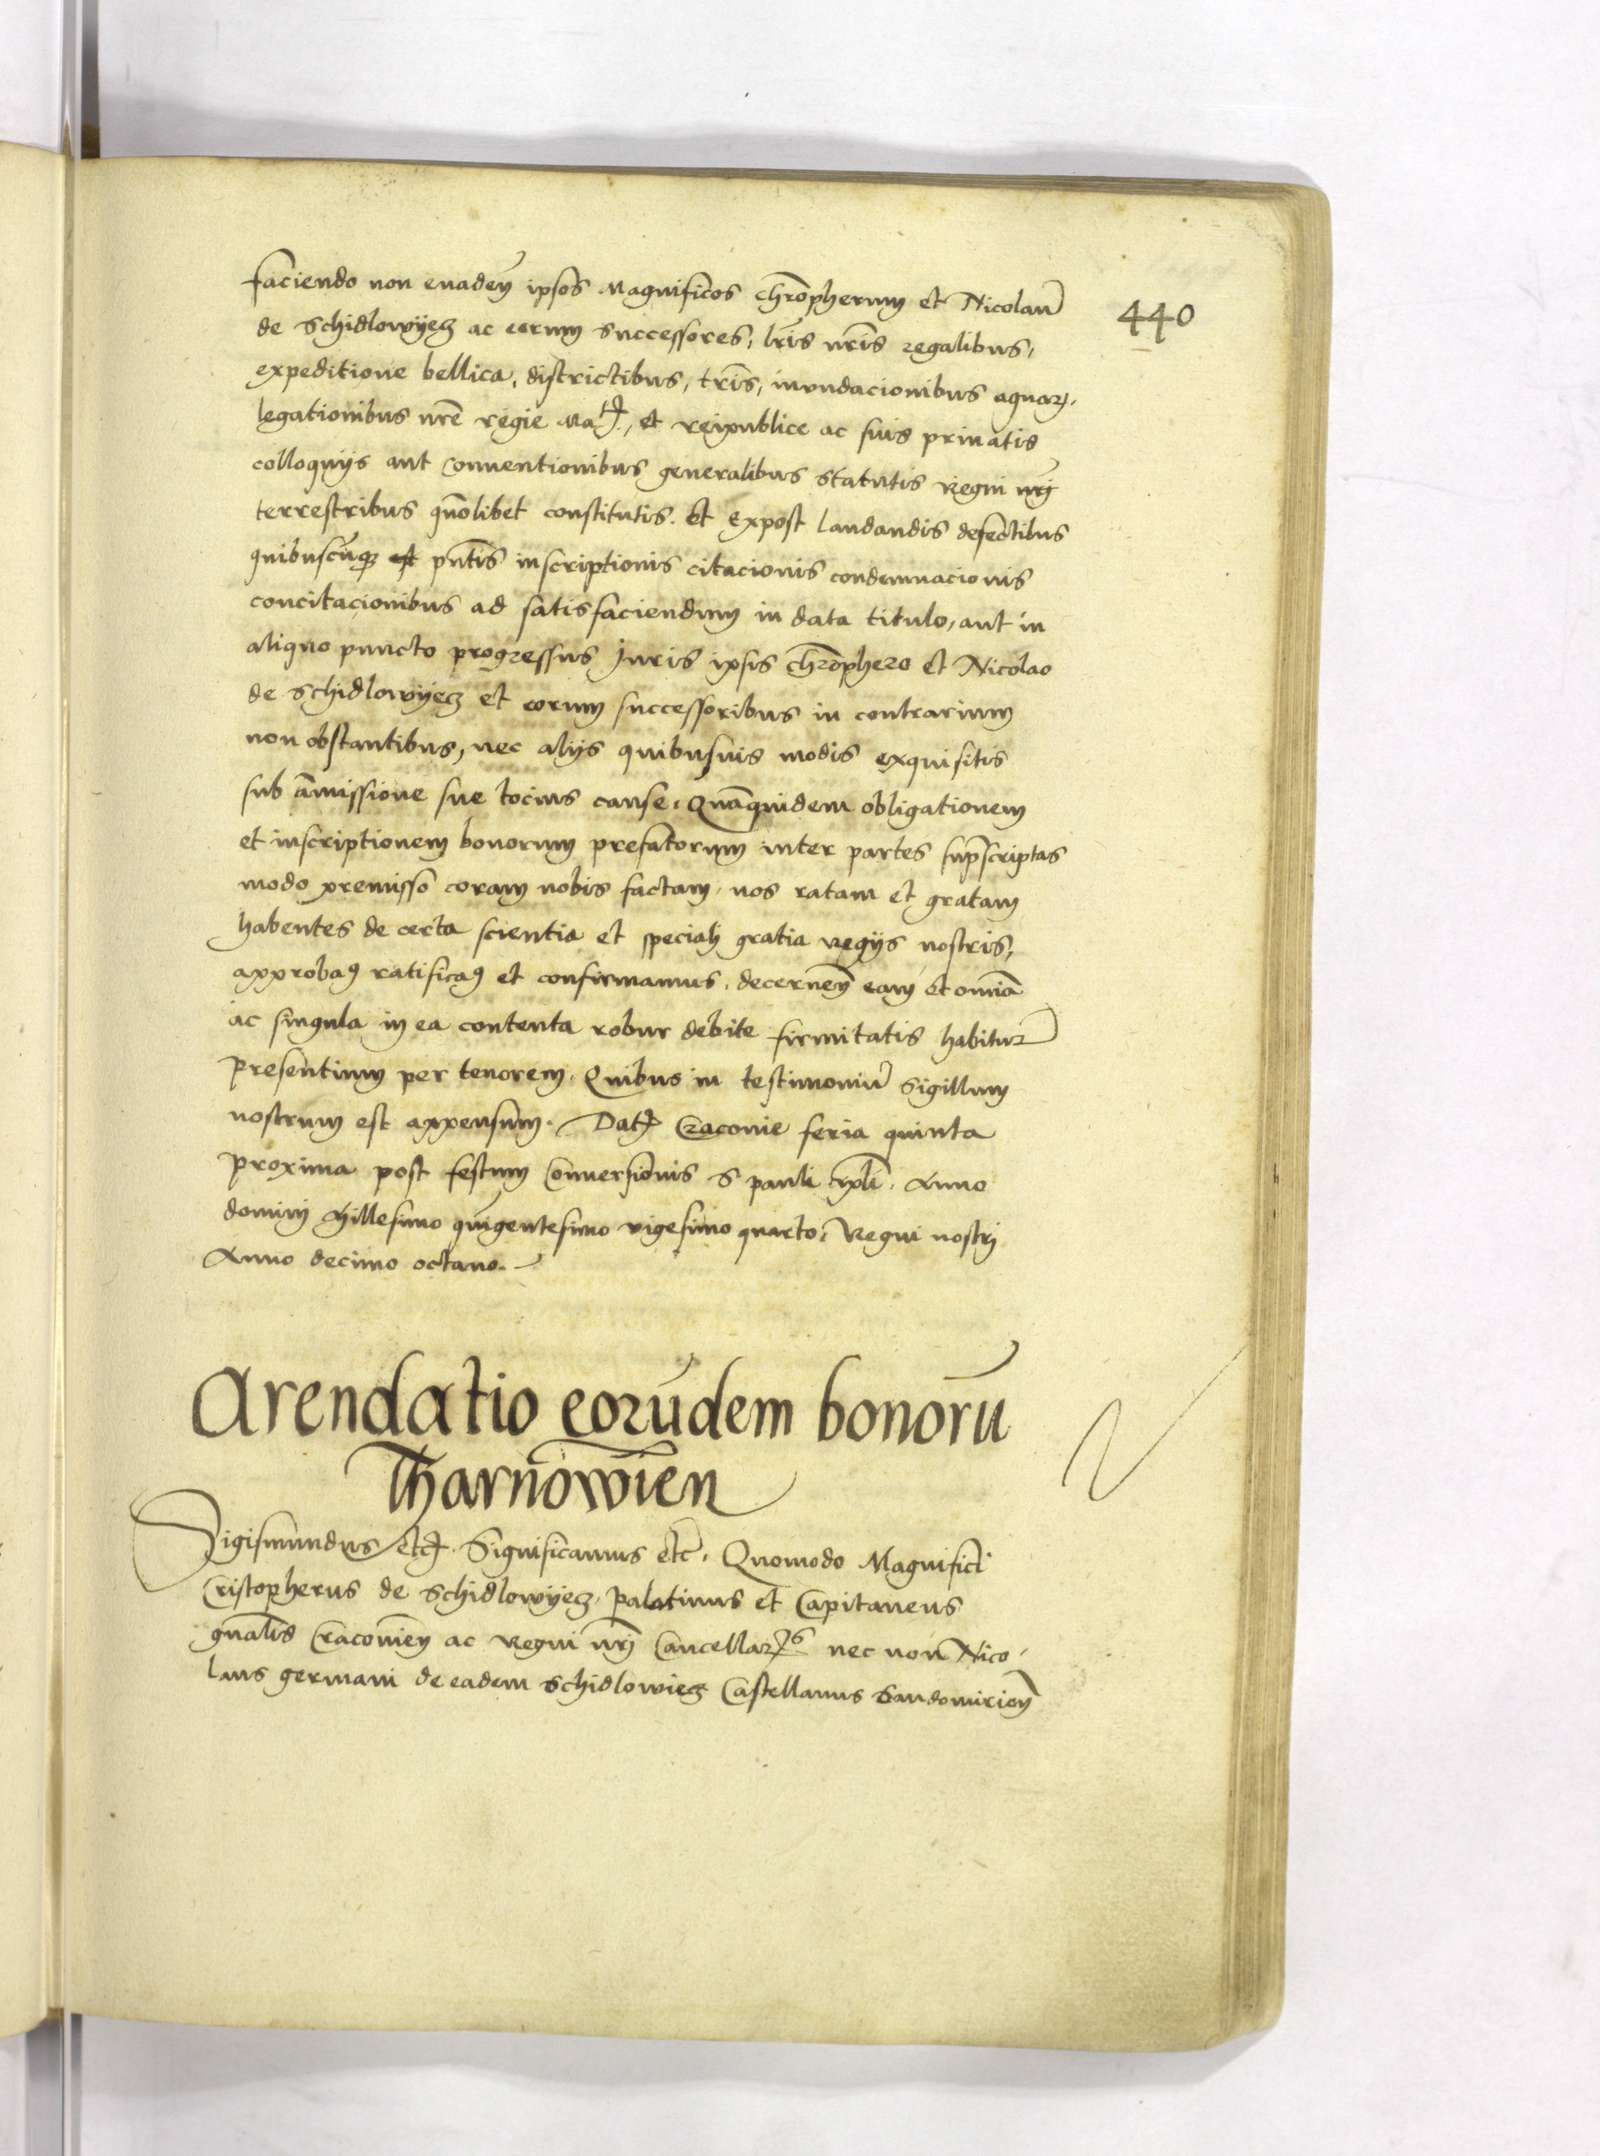 440
faciendo non euadeñ ipsos Magnificos chr̃opherum et Nicolaũ
de Schidlowyecz ac eorum successores, lr̃is nr̃is regalibus,
expeditione bellica, districtibus, tr̃is, inundacionibus aquaꝝ,
legationibus nr̃e regie Maꝭ., et reipublice ac suis priuatis
colloquijs aut conuentionibus generalibus statutis Regni nr̃j
terrestribus quõlibet constitutis. Et expost laudandis defectibus
quibuscũqꝫ pñtis inscriptionis citacionis condemnacionis
concitacionibus ad satisfaciendum in data titulo, aut in
aliquo puncto progressus Juris ipsis chr̃ophero et Nicolao
de Schidlowyecz et eorum successoribus in contrarium
non obstantibus, nec alijs quibusuis modis exquisitis
sub ãmissione sue tocius cause. Quãquidem obligationem
et inscriptionem bonorum prefatorum inter partes sup̃scriptas
modo premisso coram nobis factam, nos ratam et gratam
habentes de certa scientia et speciali gratia regijs nostris,
approbaꝫ ratificaꝫ et confirmamus, decerneñ eam et om̃ia
ac singula in ea contenta robur debite firmitatis habitur̃
presentium per tenorem. Quibus in testimoniũ Sigillum
nostrum est appensum. Datꝭ Cracouie feria quinta
proxima post festum Conuersionis S pauli ap̃li. Anno
domini Millesimo quĩgentesimo vigesimo quarto, Regni nostrj
Anno decimo octauo.
Arendatio eorũdem bonorũ
Tharnõwieñ
Sigismundus etcꝭ. Significamus etc̃. Quomodo Magnifici
Cristopherus de Schidlowyecz palatinus et Capitaneus
gñalis Cracouieñ ac Regni nr̃j Cancellarꝰ nec non Nico
laus germani de eadem Schidlowiecz Castellanus Sandomirieñ